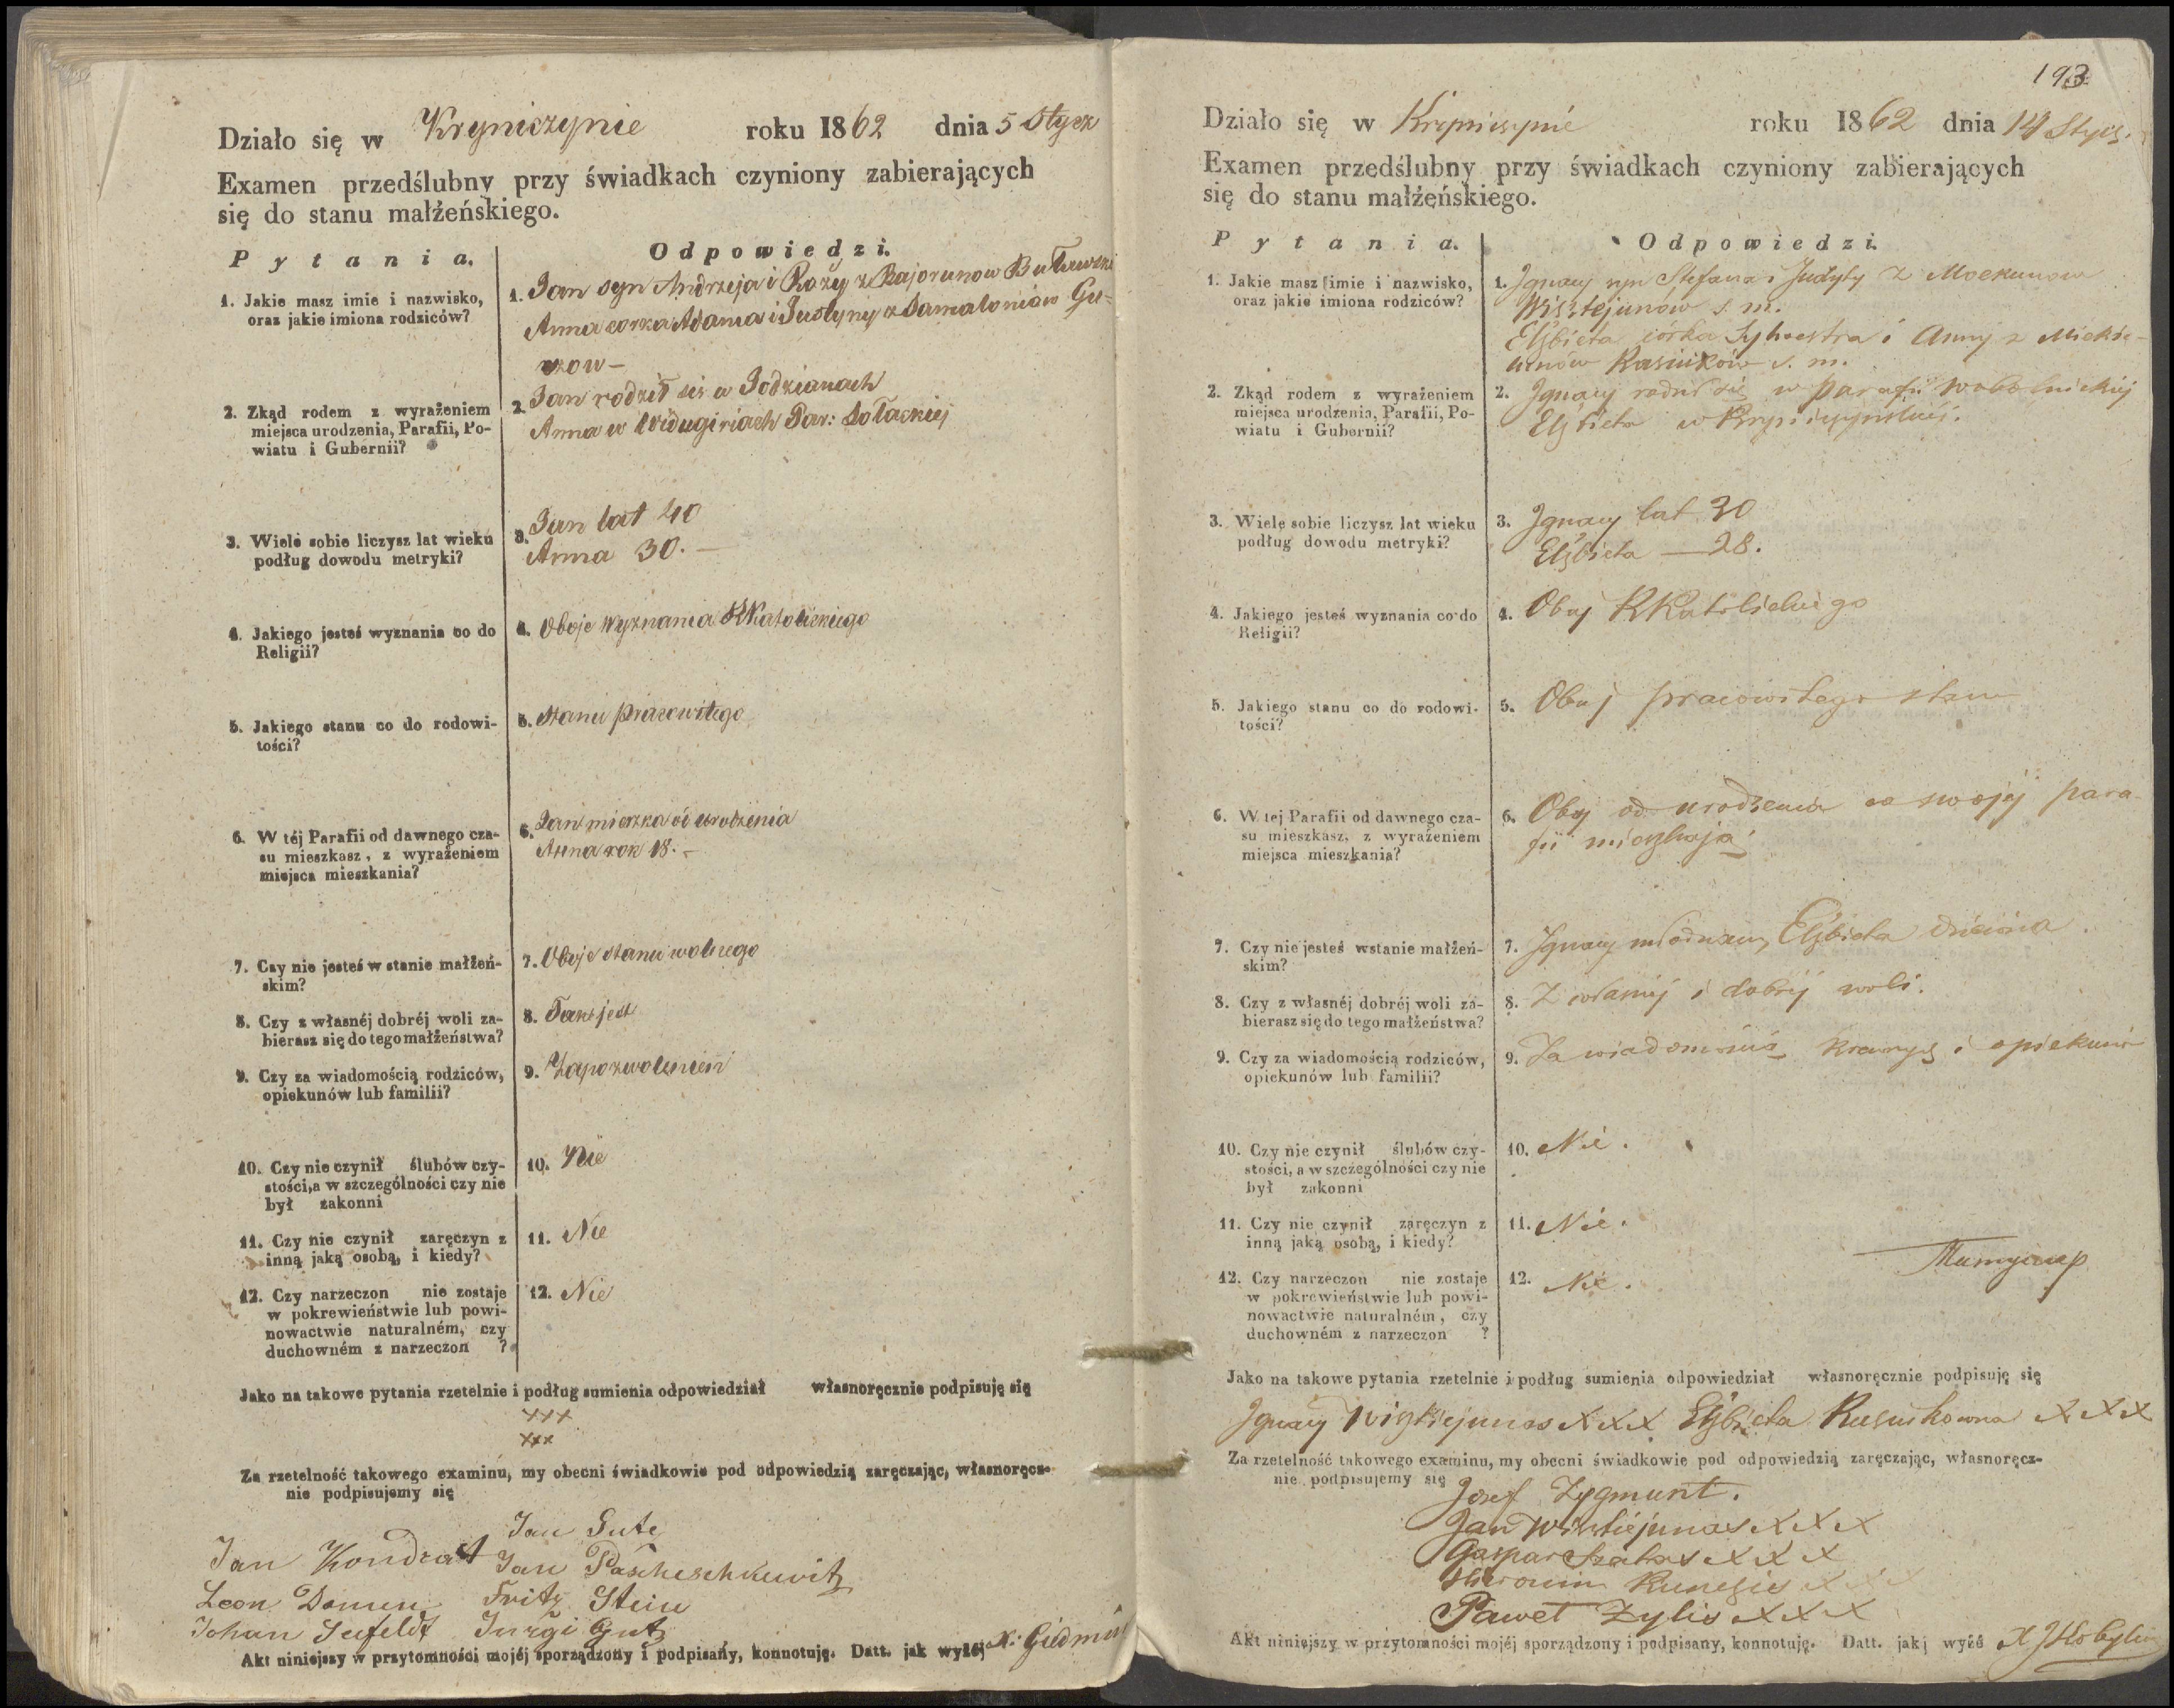 Działo się w Kryniczynie roku 1862 dnia 5 Stycz
Examen przedślubny przy świadkach czyniony zabierających
się do stanu małżeńskiego.
Pytania. Odpowiedzi.
1. Jakie masz imie i nazwisko,
oraz jakie imiona rodziców?
1. Jan syn Andrzeja i Rozy z Bajorunow
Anna corka Adama i Justyny z
2. Zkąd rodem z wyrażeniem
miejsca urodzenia, Parafii, Po-
wiatu i Gubernii?
2. Jan rodził sie w Jodzianach
Anna w Widugiriach Par: Sołackiej
3. Wiele sobie liczysz lat wieku
podług dowodu metryki?
3. Jan lat 40
Anna 30. –
4. Jakiego jesteś wyznania co do
Religii?
4. Oboje wyznania RKatolickiego
5. Jakiego stanu co do rodowi-
tości?
5. Stanu pracowitego
6. W téj Parafii od dawnego cza-
su mieszkasz, z wyrażeniem
miejsca mieszkania?
6. Jan mieszka od urodzenia
Anna rok 18. –
7. Czy nie jesteś w stanie małżeń-
skim?
7. Oboje stanu wolnego
8. Czy z własnéj dobréj woli za-
bierasz się do tego małżeństwa?
8. Tak jest
9. Czy za wiadomością rodziców,
opiekunów lub familii?
9. Za pozwoleniem
10. Czy nie czynił ślubów czy-
stości, a w szczególności czy nie
był zakonni
10. Nie
11. Czy nie czynił zaręczyn z
inną jaką osobą, i kiedy?
11. Nie
12. Czy narzeczon nie zostaje
w pokrewieństwie lub powi-
nowactwie naturalném, czy
duchowném z narzeczon ?
12. Nie
Jako na takowe pytania rzetelnie i podług sumienia odpowiedział własnoręcznie podpisuję się
xxx
xxx
Za rzetelność takowego examinu, my obecni świadkowie pod odpowiedzią zaręczając, własnoręcz-
nie podpisujemy się
Jan Gute
Jan Kondrat Jan Pascheschkewitz
Leon Domin Fritz Stein
Johan Seefeldt Jurgi Gutz
Akt niniejszy w przytomności mojéj sporządzony i podpisany, konnotuję. Datt. jak wyżéj X.
193
Działo się w roku 1862 dnia 14 Stycz.
Examen przedślubny przy świadkach czyniony zabierających
się do stanu małżeńskiego.
Pytania. Odpowiedzi.
1. Jakie masz imie i nazwisko,
oraz jakie imiona rodziców?
1. Ignacy syn Stefana i Judyty z Mockunow
Wisztejunow s. m.
Elżbieta córka Sylwestra i Anny z
s. m.
2. Zkąd rodem z wyrażeniem
miejsca urodzenia, Parafii, Po-
wiatu i Gubernii?
2. Ignacy rodził się w parafii Wobolnickiej
Elżbieta w
3. Wiele sobie liczysz lat wieku
podług dowodu metryki?
3. Ignacy lat 30
Elżbieta — 28.
4. Jakiego jesteś wyznania co do
Religii?
4. Oboj RKatolickiego
5. Jakiego stanu co do rodowi-
tości?
5. Oboj pracowitego stanu
6. W tej Parafii od dawnego cza-
su mieszkasz, z wyrażeniem
miejsca mieszkania?
6. Oboj od urodzenia w swojej para-
fii mieszkają
7. Czy nie jesteś wstanie małżeń-
skim?
7. Ignacy młodzian, Elżbieta
8. Czy z własnéj dobréj woli za-
bierasz się do tego małżeństwa?
8. Z własnej i dobrej woli.
9. Czy za wiadomością rodziców,
opiekunów lub familii?
9. Za wiadomością krewnych i opiekunów
10. Czy nie czynił ślubów czy-
stości, a w szczególności czy nie
był zakonni
10. Nie.
11. Czy nie czynił zaręczyn z
inną jaką osobą, i kiedy?
11. Nie.
12. Czy narzeczon nie zostaje
w pokrewieństwie lub powi-
nowactwie naturalném, czy
duchowném z narzeczon ?
12. Nie.
Jako na takowe pytania rzetelnie i podług sumienia odpowiedział własnoręcznie podpisuję się
Ignacy Wisztiejunas xxx Elżbieta xxx
Za rzetelność takowego examinu, my obecni świadkowie pod odpowiedzią zaręczając, własnoręcz-
nie podpisujemy się
Jozef Zygmunt.
Jan Wisztiejunas xxx
Gaspar Szatas xxx
Hieronim xxx
Paweł Zylis xxx
Akt niniejszy w przytomności mojéj sporządzony i podpisany, konnotuję. Datt. jakj wyżé